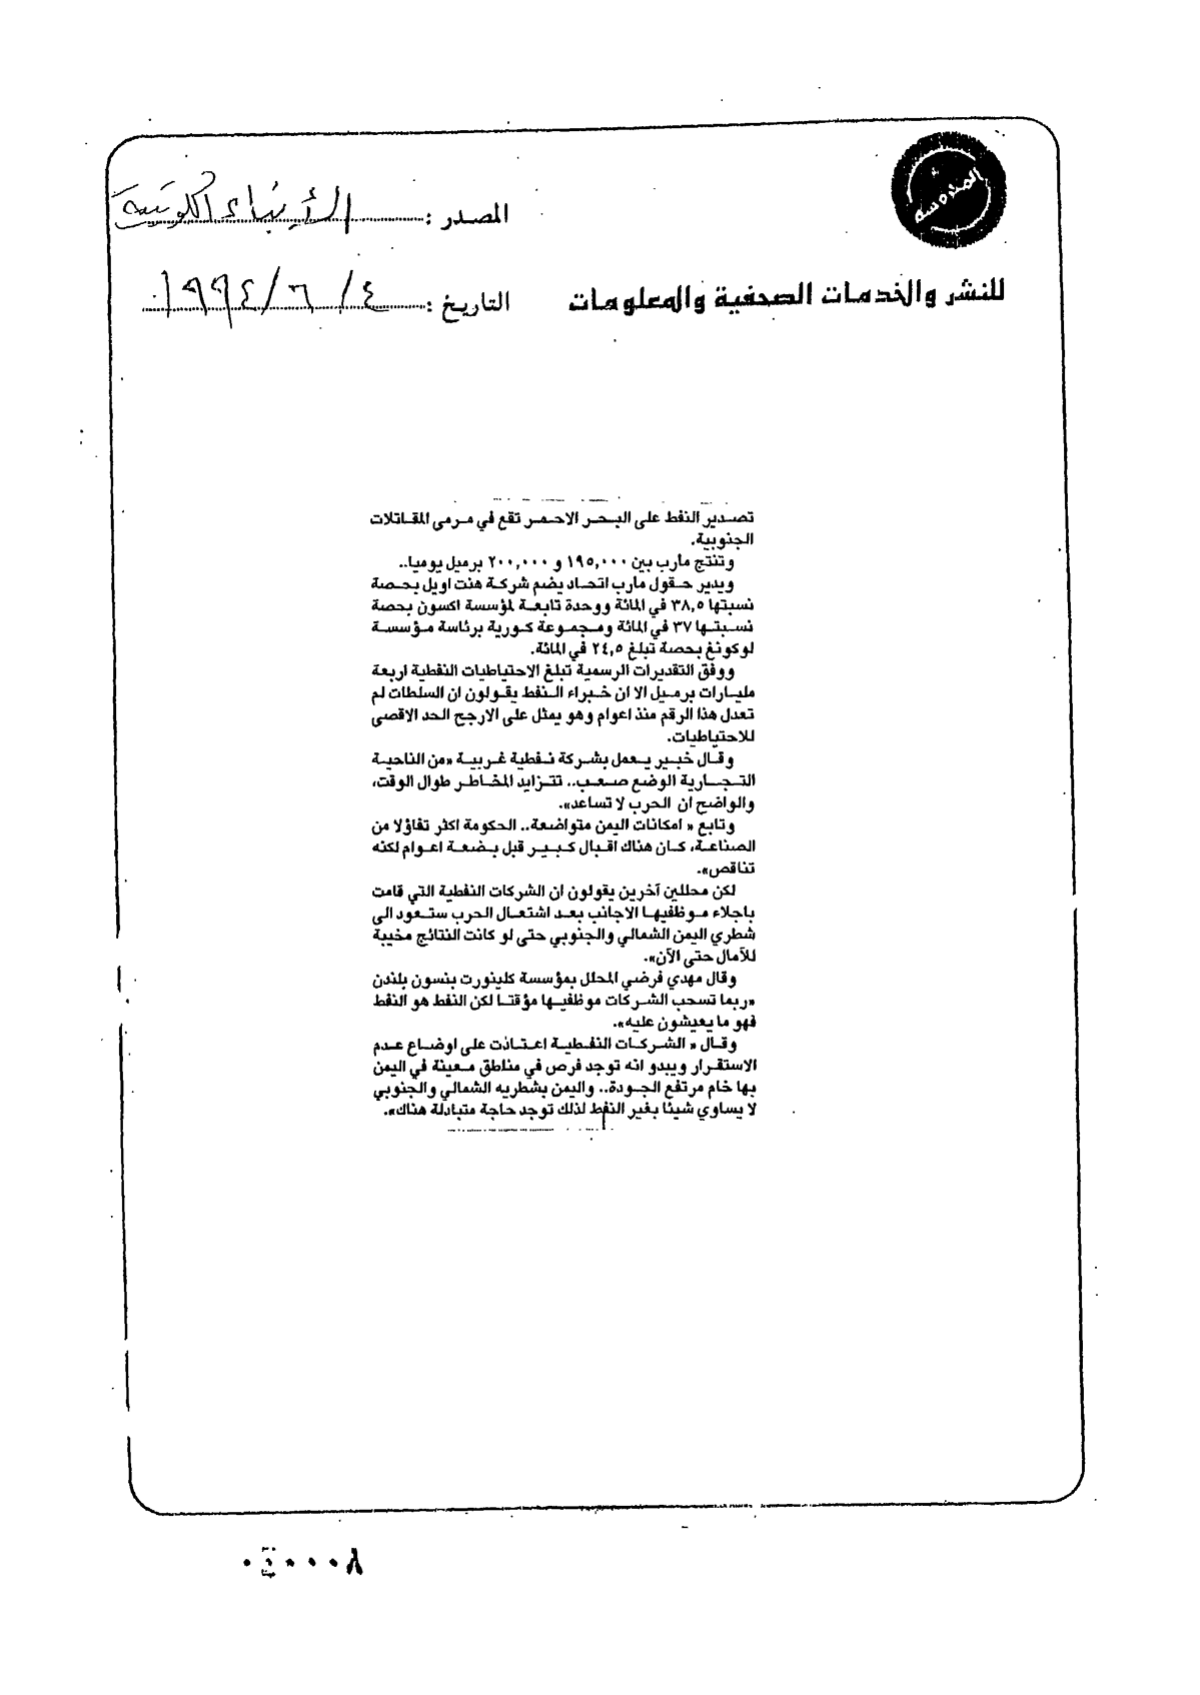 المصدر : الأنباء الكويتية
للنشر والخدمات الصحفية والمعلومات
التاريخ : ٤ / ٦ / ١٩٩٤
تصدير النفط على البحر الاحمر تقع في مرمى المقاتلات
الجنوبية.
وتنتج مأرب بين ١٩٥,٠٠٠ و ٢٠٠,٠٠٠ برميل يوميا..
ويدير حقول مأرب اتحاد يضم شركة هنت اويل بحصة
نسبتها ٣٨,٥ في المائة ووحدة تابعة لمؤسسة اكسون بحصة
نسبتها ٣٧ في المائة ومجموعة كورية برئاسة مؤسسة
لوكونغ بحصة تبلغ ٢٤,٥ في المائة.
ووفق التقديرات الرسمية تبلغ الاحتياطيات النفطية اربعة
مليارات برميل الا ان خبراء النفط يقولون ان السلطات لم
تعدل هذا الرقم منذ اعوام وهو يمثل على الارجح الحد الاقصى
للاحتياطيات.
وقال خبير يعمل بشركة نفطية غربية «من الناحية
التجارية الوضع صعب.. تتزايد المخاطر طوال الوقت،
والواضح ان الحرب لا تساعد».
وتابع « امكانات اليمن متواضعة.. الحكومة اكثر تفاؤلا من
الصناعة، كان هناك اقبال كبير قبل بضعة اعوام لكنه
تناقص».
لكن محللين آخرين يقولون ان الشركات النفطية التي قامت
باجلاء موظفيها الاجانب بعد اشتعال الحرب ستعود الى
شطري اليمن الشمالي والجنوبي حتى لو كانت النتائج مخيبة
للآمال حتى الآن».
وقال مهدي فرضي المحلل بمؤسسة كلينورت بنسون بلندن
«ربما تسحب الشركات موظفيها مؤقتا لكن النفط هو النفط
فهو ما يعيشون عليه».
وقال « الشركات النفطية اعتادت على اوضاع عدم
الاستقرار ويبدو انه توجد فرص في مناطق معينة في اليمن
بها خام مرتفع الجودة.. واليمن بشطريه الشمالي والجنوبي
لا يساوي شيئا بغير النفط لذلك توجد حاجة متبادلة هناك».